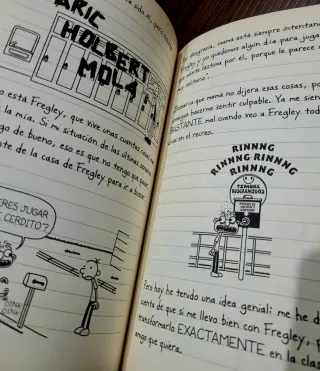 a sido él, pero
ARIC
HOLBERT
MOLA
o está Fregley, que vive unas cuantas casas
la mía. Si mi situación de las últimas
go de bueno, eso es que no tengo que pasar
te de la casa de Fregley para ir a
ERES JUGAR
CERDITO?
OINK
OINK
desgracia, mamá está siempre intentan
Fregley y yo quedemos algún día para jugar
lástima por él, porque le parece
mamá no dijera esas cosas, po
consigue hacerme sentir culpable. Ya me sien
BASTANTE mal cuando veo a Fregley tod
en el recreo.
RINNNG
RINNNG RINNNG
RINNNG
TIMBRE
Pero hoy he tenido una idea genial: me he d
cuenta de que si me llevo bien con Fregley, p
transformarlo EXACTAMENTE en la clas
amigo que quiera.